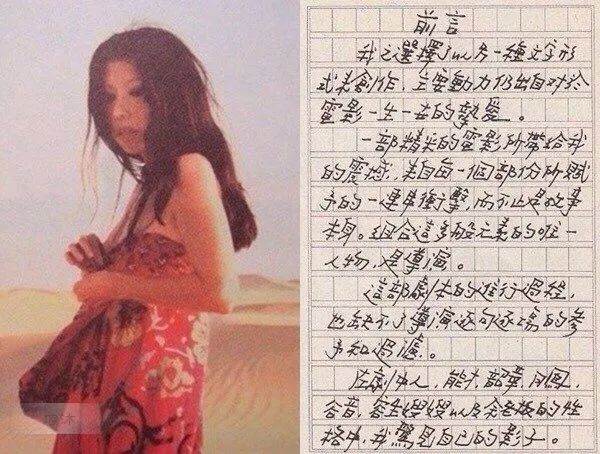 前言
我之選擇了以另一種文字形
式來創作，主要動力仍出自對於
電影一生一世的摯愛。
一部精采的電影所帶給我
的震撼，來自每一個部份所賦
予的一連串衝擊，而不止是故事
本身。組合這多般元素的唯一
人物，是導演。
這部劇本的進行過程，
也缺不了導演逐句逐場的參
予和過濾。
在劇中人，能才，韶華，月鳳，
谷音，容生嫂嫂以及余老板的性
格中，我驚見自己的影子。